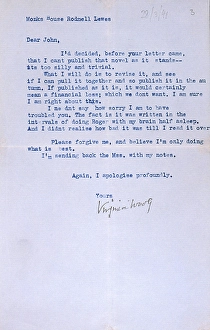 Monks House Rodmell Lewes
Dear John,
I'd decided, before your letter came,
that I cant publish that novel as it stands--
its too silly and trivial.
What I will do is to revise it, and see
if I can pull it together and so publish it in the au
tumn. If published as it is, it would certainly
mean a financial loss; which we dont want. I am sure
I am right about this.
I ne dnt say how sorry I am to have
troubled you. The fact is it was written in the
intervals of doing Roger with my brain half asleep.
And I didnt realise how bad it was till I read it over
Please forgive me, and believe I'm only doing
what is best.
I'm sending back the Mss. with my notes.
Again, I apologise profoundly.
Yours
Virginia Woolf